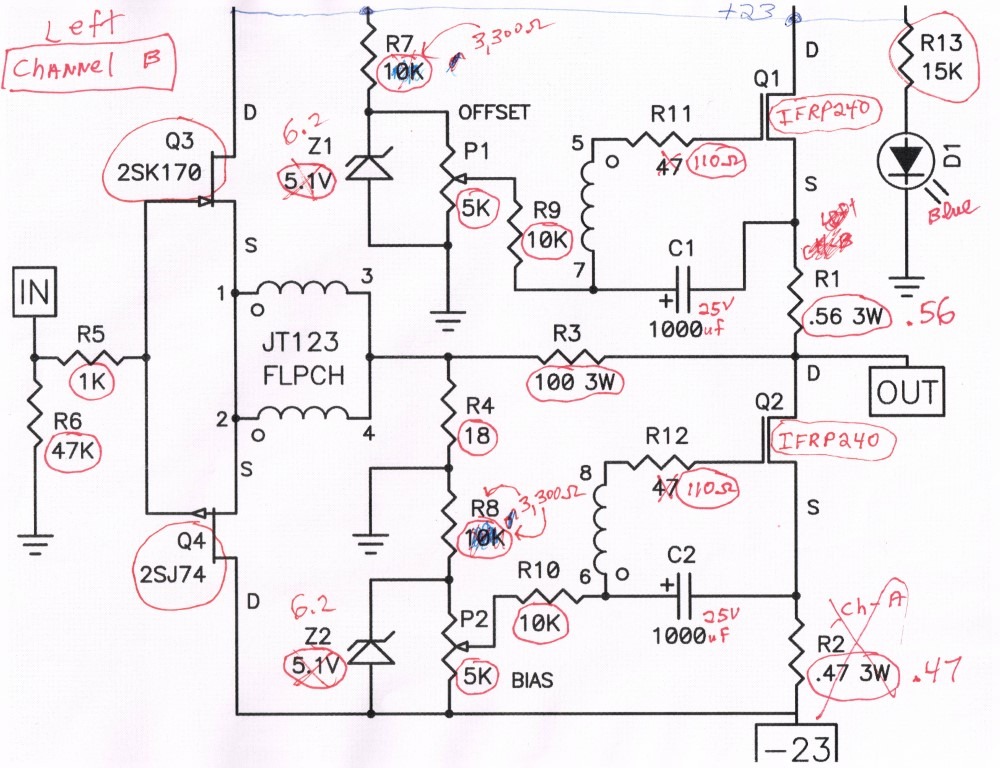 Left
Channel B
+23
R7
10K
3,300Ω
D
Q3
2SK170
6.2
Z1
5.1V
OFFSET
P1
5K
R9
10K
5
7
R11
47
110Ω
Q1
IFRP240
D
S
R13
15K
D1
Blue
C1
+
25V
1000uf
R1
.56 3W
.56
S
IN
R5
1K
R6
47K
1
2
3
4
JT123
FLPCH
R3
100 3W
OUT
D
Q2
IFRP240
R4
18
S
Q4
2SJ74
D
R8
10K
3,300Ω
R12
47
110Ω
8
6
S
R10
10K
C2
+
25V
1000uf
6.2
Z2
5.1V
P2
5K
BIAS
Ch-A
R2
.47 3W
.47
-23